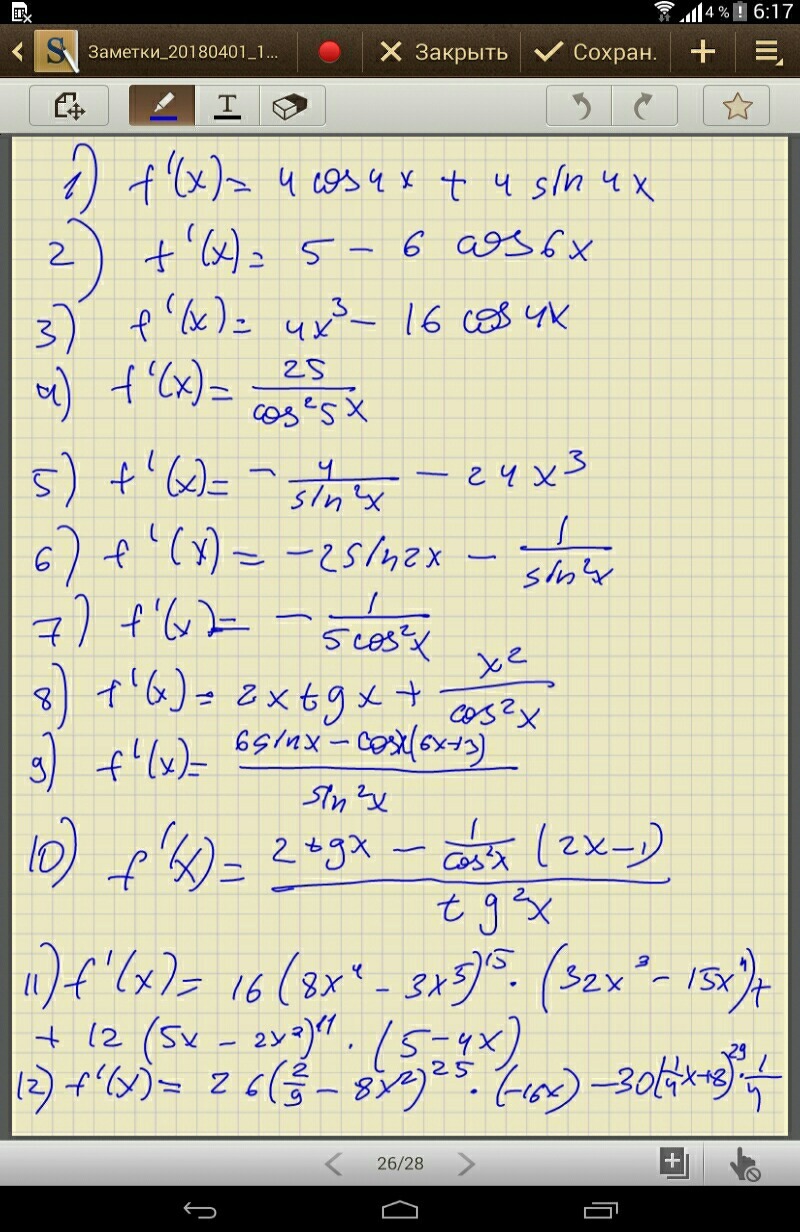 4 % 6:17
Заметки_20180401_1... Закрыть Сохран.
T
1) f'(x) = 4 cos 4x + 4 sin 4x
2) f'(x) = 5 - 6 cos 6x
3) f'(x) = 4x³ - 16 cos 4x
4) f'(x) = 25 / cos²5x
5) f'(x) = - 4 / sin²x - 24x³
6) f'(x) = -2sin2x - 1 / sin²x
7) f'(x) = - 1 / 5cos²x
8) f'(x) = 2x tg x + x² / cos²x
9) f'(x) = (6sinx - cosx(6x+3)) / sin²x
10) f'(x) = (2 tgx - 1/cos²x (2x-1)) / tg²x
11) f'(x) = 16 (8x⁴ - 3x⁵)¹⁵ · (32x³ - 15x⁴) +
+ 12 (5x - 2x²)¹¹ · (5 - 4x)
12) f'(x) = 26(2/9 - 8x²)²⁵ · (-16x) - 30(1/4x + 8)²⁹ · 1/4
26/28